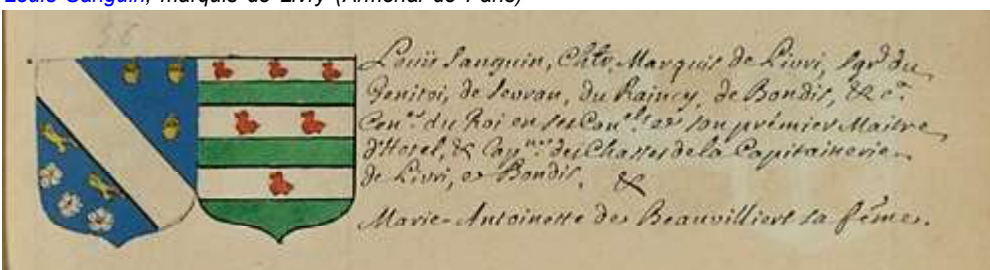 Louis Sanguin, marquis de Livry (Armorial de Paris)
56
Louis Sanguin, Chlr, Marquis de Livri, Sgr du
Genitoi, de Sevran, du Raincy, de Bondis, &c.
Coner du Roi en ses Conels et son prémier Maitre
d'Hotel, & Capne des Chasses de la Capitainerie
de Livri, et Bondis, &
Marie-Antoinette de Beauvilliers sa fême.